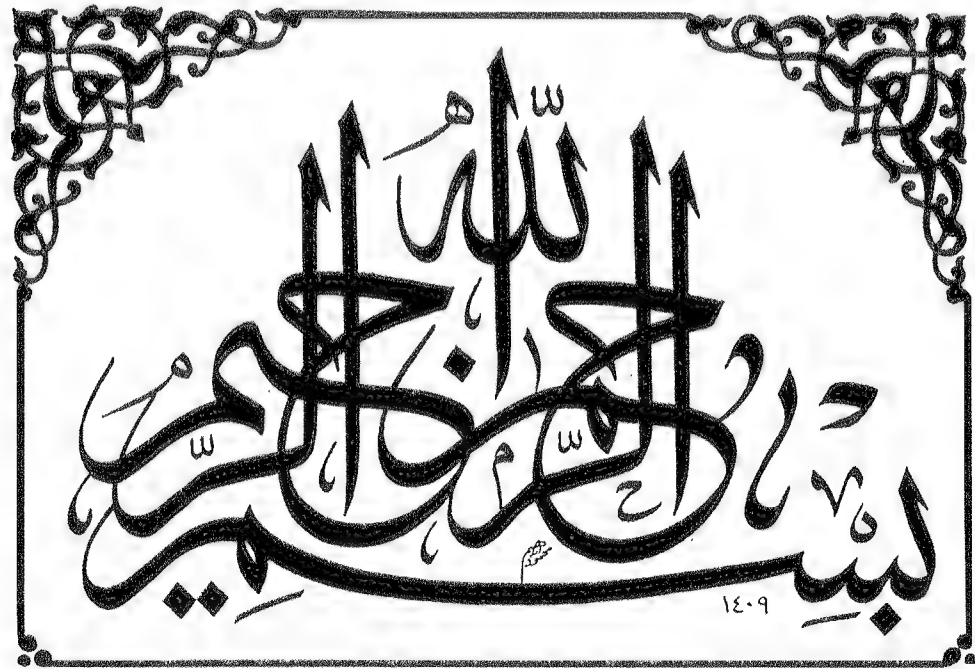 بسم الله الرحمن الرحيم
١٤٠٩